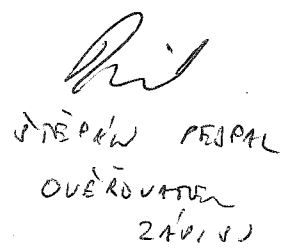 ŠTĚPÁN PESPAL
OVĚŘOVATEL
ZÁPISU